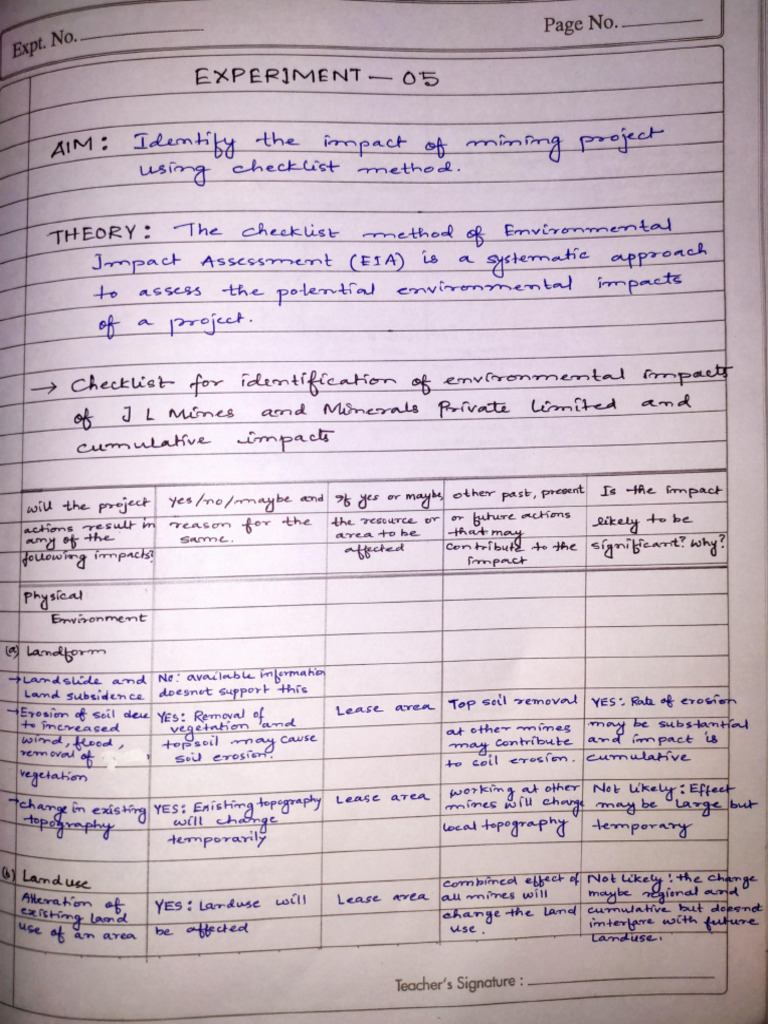 Expt. No.
Page No.
EXPERIMENT — 05
AIM: Identify the impact of mining project
using checklist method.
THEORY: The checklist method of Environmental
Impact Assessment (EIA) is a systematic approach
to assess the potential environmental impacts
of a project.
→ Checklist for identification of environmental impacts
of J L Mines and Minerals Private Limited and
cumulative impacts
will the project
actions result in
any of the
following impacts?
yes/no/maybe and
reason for the
same.
If yes or maybe,
the resource or
area to be
affected
other past, present
or future actions
that may
contribute to the
impact
Is the impact
likely to be
significant? Why?
Physical
Environment
(a) Landform
→ Landslide and
Land subsidence
No: available information
doesnot support this
→ Erosion of soil due
to increased
wind, flood,
removal of
vegetation
YES: Removal of
vegetation and
topsoil may cause
soil erosion.
Lease area
Top soil removal
at other mines
may contribute
to soil erosion.
YES: Rate of erosion
may be substantial
and impact is
cumulative
→ change in existing
topography
YES: Existing topography
will change
temporarily
Lease area
working at other
mines will change
local topography
Not Likely: Effect
may be Large but
temporary
(b) Land use
Alteration of
existing land
use of an area
YES: Landuse will
be affected
Lease area
combined effect of
all mines will
change the land
use.
Not Likely: the change
maybe regional and
cumulative but doesnot
interfere with future
Landuse.
Teacher's Signature :